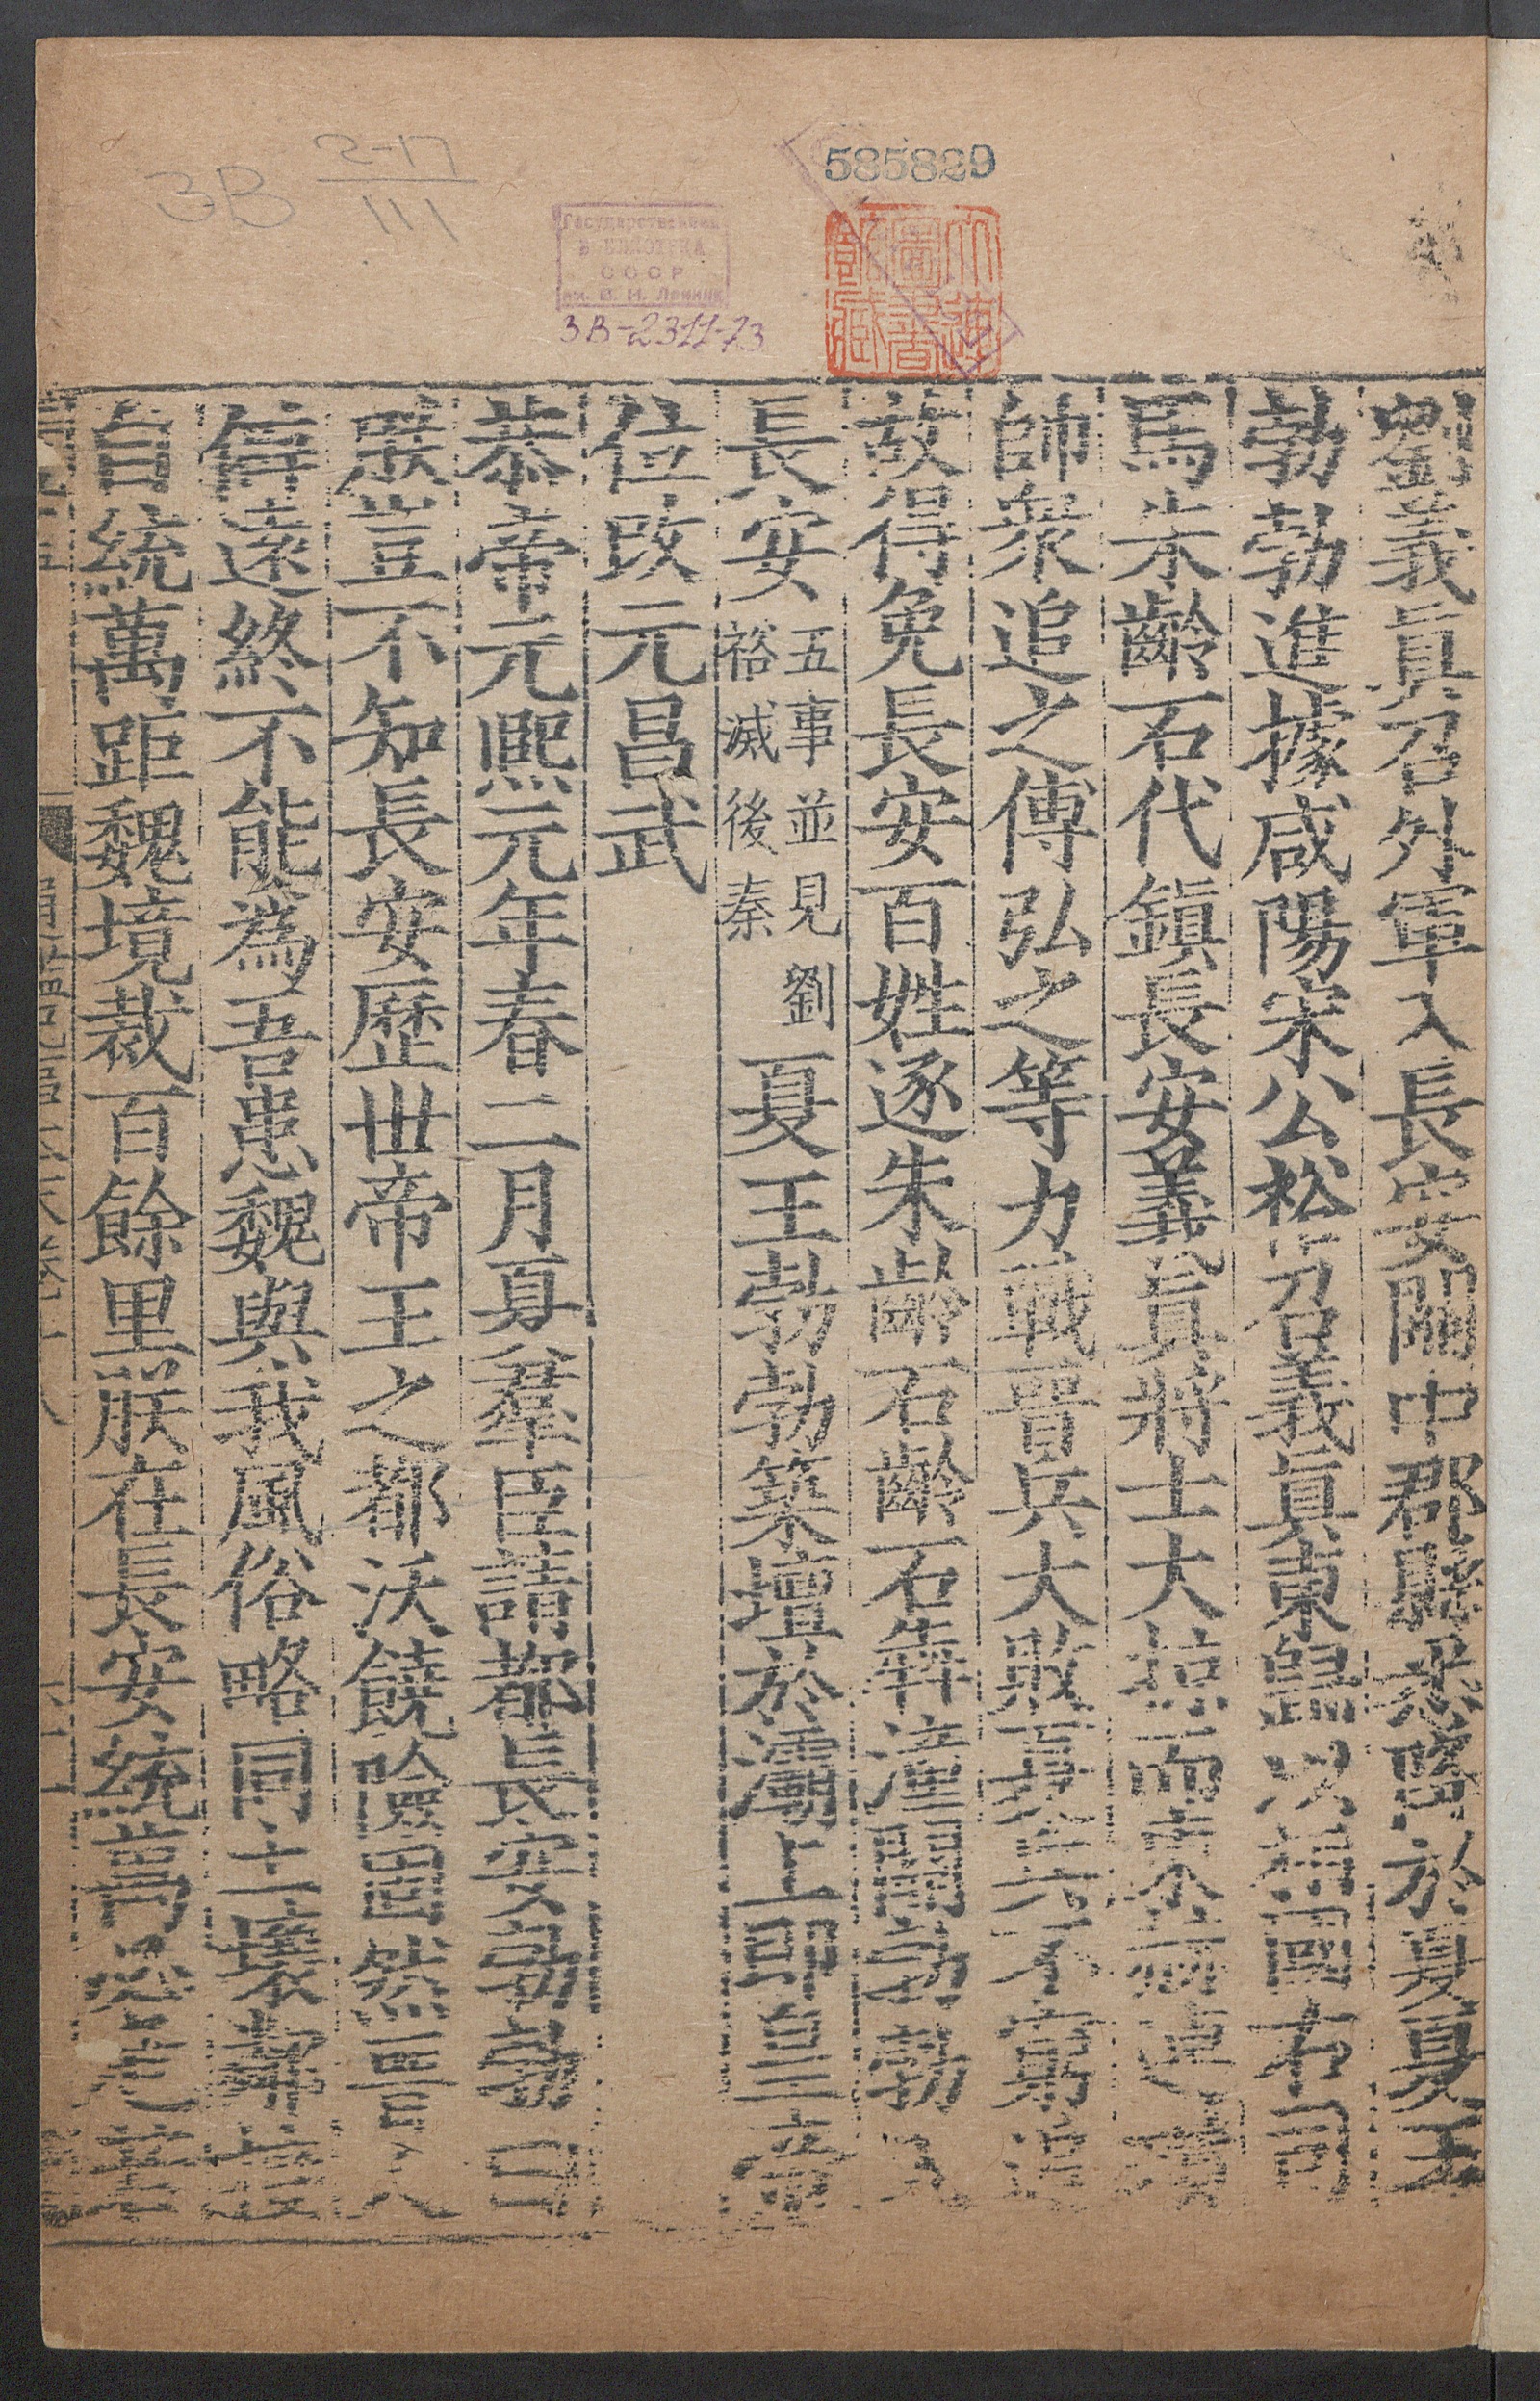 585829
3B 2-17
III
Государственная
БИБЛИОТЕКА
СССР
им. В. И. Ленина
3В-2311-73
大連
圖書
館藏
劉義眞召外軍入長安關中郡縣悉降於夏夏王
勃勃進據咸陽宋公裕召義眞東歸以相國右司
馬朱齡石代鎮長安義眞將士大掠而東赫連璝
帥衆追之傅弘之等力戰晉兵大敗夏兵不窮追
故得免長安百姓逐朱齡石齡石犇潼關勃勃入
長安五事並見劉裕滅後秦夏王勃勃築壇於灞上卽皇帝
位改元昌武
恭帝元熙元年春二月夏羣臣請都長安勃勃曰
朕豈不知長安歷世帝王之都沃饒險固然晉人
僻遠終不能爲吾患魏與我風俗略同土壤鄰接
自統萬距魏境裁百餘里朕在長安統萬必危若